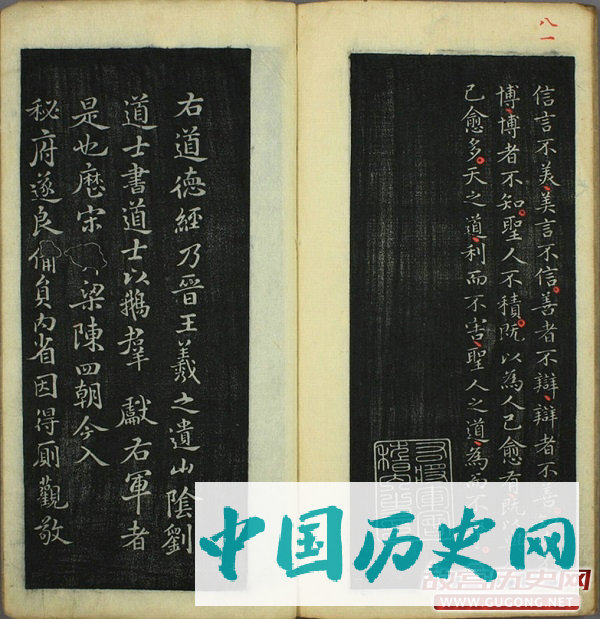 八一
信言不美美言不信善者不辯辯者不善
博博者不知聖人不積既以為人己愈有既以
己愈多天之道利而不害聖人之道為而不
右道德經乃晉王羲之遺山陰劉
道士書道士以鵝羣 獻右軍者
是也歷宋 梁陳四朝今入
秘府遂良備員內省因得厠觀敬
中国历史网
历史网
WWW.CUGONG.NET